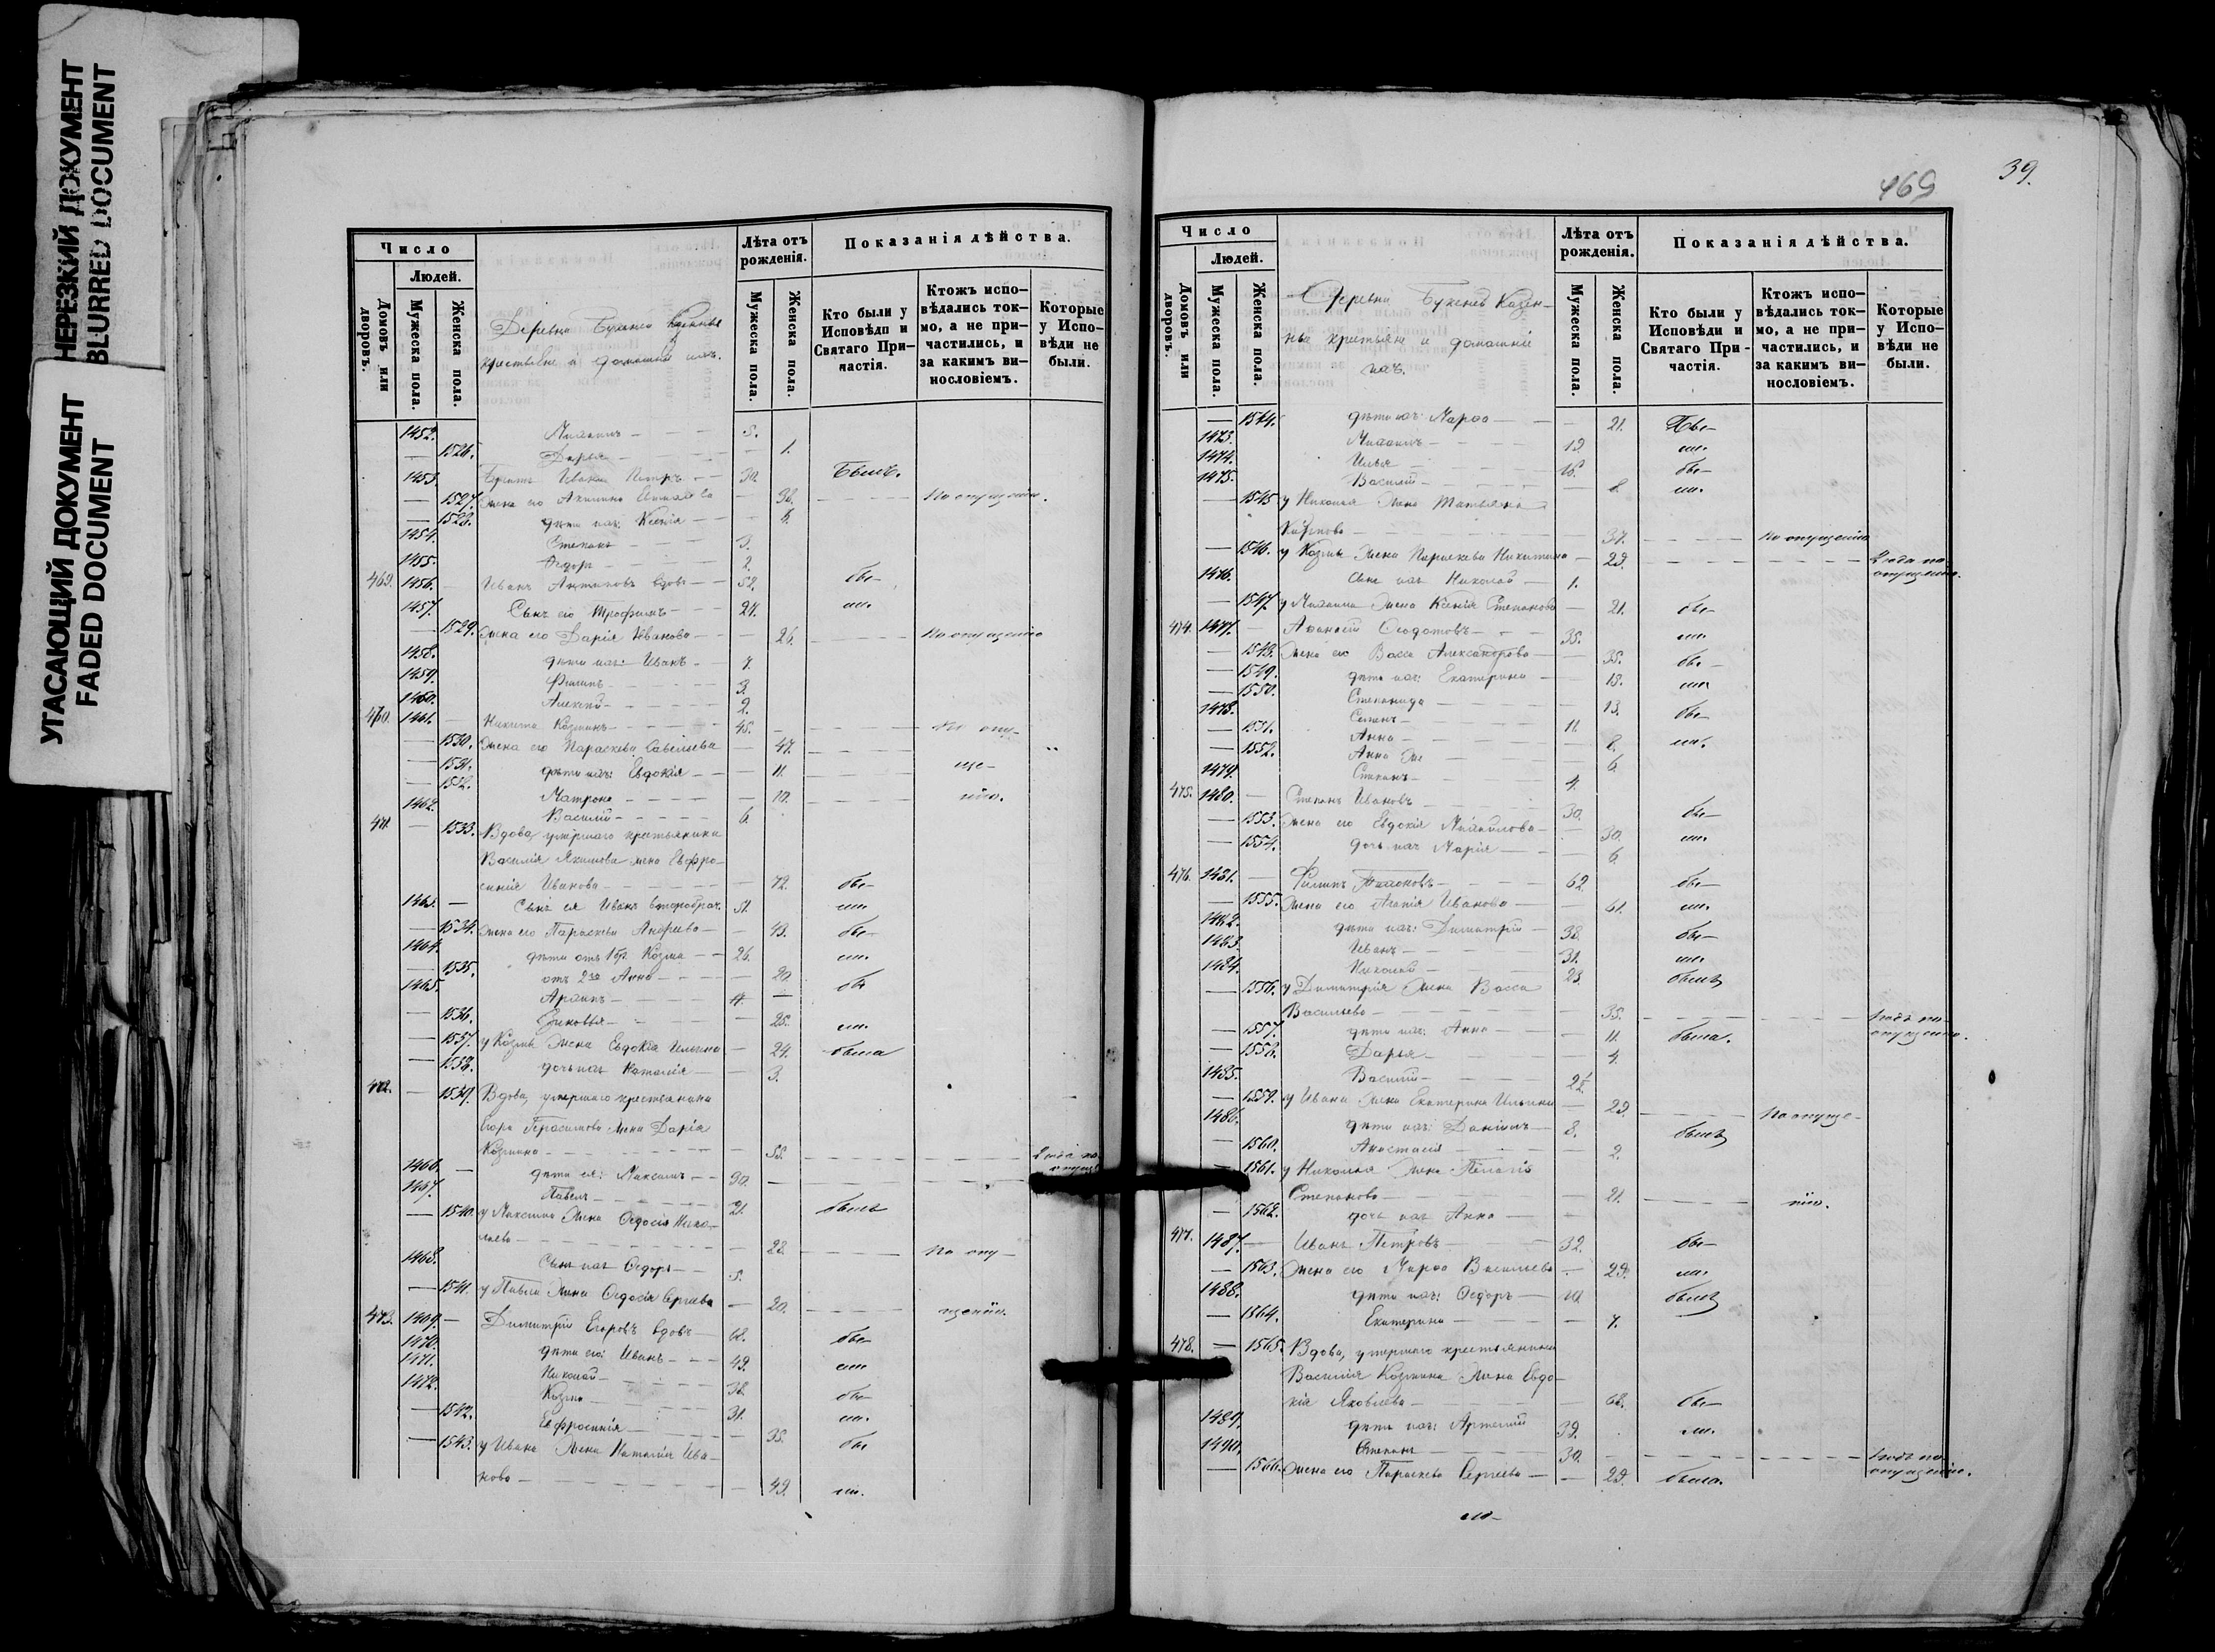 НЕРЕЗКИЙ ДОКУМЕНТ
BLURRED DOCUMENT
УГАСАЮЩИЙ ДОКУМЕНТ
FADED DOCUMENT
Число
Людей.
Домовъ или дворовъ.
Мужеска пола.
Женска пола.
Деревня
крестьяне и домашніе ихъ.
Лѣта отъ рожденія.
Мужеска пола.
Женска пола.
Показанія дѣйства.
Кто были у Исповѣди и Святаго Причастія.
Ктожъ исповѣдались токмо, а не причастились, и за какимъ винословіемъ.
Которые у Исповѣди не были.
1452. Михаилъ 5.
1526. Дарья 1.
1453. Братъ Ивана Петръ 30. Былъ.
1527. Жена его Акилина 30. По опущенію.
1528. дѣти ихъ: Ксенія
1454. Степанъ 3.
1455. Федоръ 2.
469. 1456. Иванъ Антиповъ вдовъ 52. бы-
1457. Сынъ его Трофимъ 24. ли.
1529. Жена его Дарія Иванова 26. По опущенію
1458. дѣти ихъ: Иванъ
1459. Филипъ 3.
1460. Алексѣй 2.
470. 1461. Никита Козминъ 45. По опу-
1530. Жена его Параскева Савельева 47.
1531. дѣти ихъ: Евдокія 11. ще-
1532. Матрона 10. нію.
1462. Василій 6.
471. 1533. Вдова, умершаго крестьянина
Василія Якимова жена Евфро-
синія Иванова 72. бы-
1463. Сынъ ея Иванъ второбрач. 51. ли.
1534. Жена его Параскева Андреева 43. бы-
1464. дѣти отъ 1 бр. Козма 26. ли.
1535. отъ 2го Анна 20. бы
1465. Архипъ
1536. 25. ли.
1537. у Козмы Жена Евдокія Ильина 24. была
1538. дочь ихъ Наталія 3.
472. 1539. Вдова, умершаго крестьянина
Егора Герасимова жена Дарія
Козмина 55.
1466. дѣти ея: Максимъ 30.
1467. Павелъ 21. былъ
1540. у Максима Жена Федосія Нико-
лаева 28. По опу-
1468. Сынъ ихъ Федоръ 5.
1541. у Павла Жена Федосія Сергѣева 20. щенію.
473. 1469. Димитрій Егоровъ вдовъ 68. бы-
1470. дѣти его: Иванъ 49. ли
1471. Николай 38. бы-
1472. Козма 31. ли.
1542. Евфросинія 35. бы
1543. у Ивана Жена Наталія Ива-
нова 49. ли.
39.
469
Число
Людей.
Домовъ или дворовъ.
Мужеска пола.
Женска пола.
Деревня Казен-
ные крестьяне и домашніе
ихъ.
Лѣта отъ рожденія.
Мужеска пола.
Женска пола.
Показанія дѣйства.
Кто были у Исповѣди и Святаго Причастія.
Ктожъ исповѣдались токмо, а не причастились, и за какимъ винословіемъ.
Которые у Исповѣди не были.
1544. дѣти ихъ: Марфа 21. Бы-
1473. Михаилъ 19. ли.
1474. Илья 16. бы-
1475. Василій 8. ли.
1545 у Николая Жена Татьяна
Карпова 37. По опущенію
1546. у Козмы Жена Параскева Никитина 29.
1476. Сынъ ихъ Николай 1.
1547. у Михаила Жена Ксенія Степанова 21. бы-
474. 1477. Афанасій Федотовъ 35. ли.
1548. Жена его Васса Александрова 35. бы-
1549. дѣти ихъ: Екатерина 15. ли
1550. Степанида 13. бы-
1478. Семенъ 11.
1551. Анна 8. ли.
1552. Анна 6.
1479. Степанъ 4.
475. 1480. Степанъ Ивановъ 30. бы-
1553. Жена его Евдокія Михайлова 30. ли.
1554. дочь ихъ Марія 6.
476. 1481. Филипъ 62. бы-
1555. Жена его Агапія Иванова 61. ли.
1482. дѣти ихъ: Димитрій 38. бы-
1483. Иванъ 31. ли.
1484. Николай 23. былъ
1556. у Димитрія Жена Васса
Васильева 35.
1557. дѣти ихъ: Анна 11. была.
1558. Дарья 4.
1485. Василій
1559. у Ивана Жена Екатерина Ильина 29. По опуще-
1486. дѣти ихъ: Даніилъ 8. былъ
1560. Анастасія 2.
1561. у Николая Жена Пелагія
Степанова 21. нію.
1562. дочь ихъ Анна
477. 1487. Иванъ Петровъ 32. бы-
1563. Жена его Марфа Васильева 29. ли.
1488. дѣти ихъ: Федоръ 10. былъ
1564. Екатерина 7.
478. 1565. Вдова, умершаго крестьянина
Василія Козмина Жена Евдо-
кія Яковлева 68. бы-
1489. дѣти ихъ: Артемій 39. ли.
1490. Степанъ 30.
1566. Жена его Параскева Сергѣева 29. была.